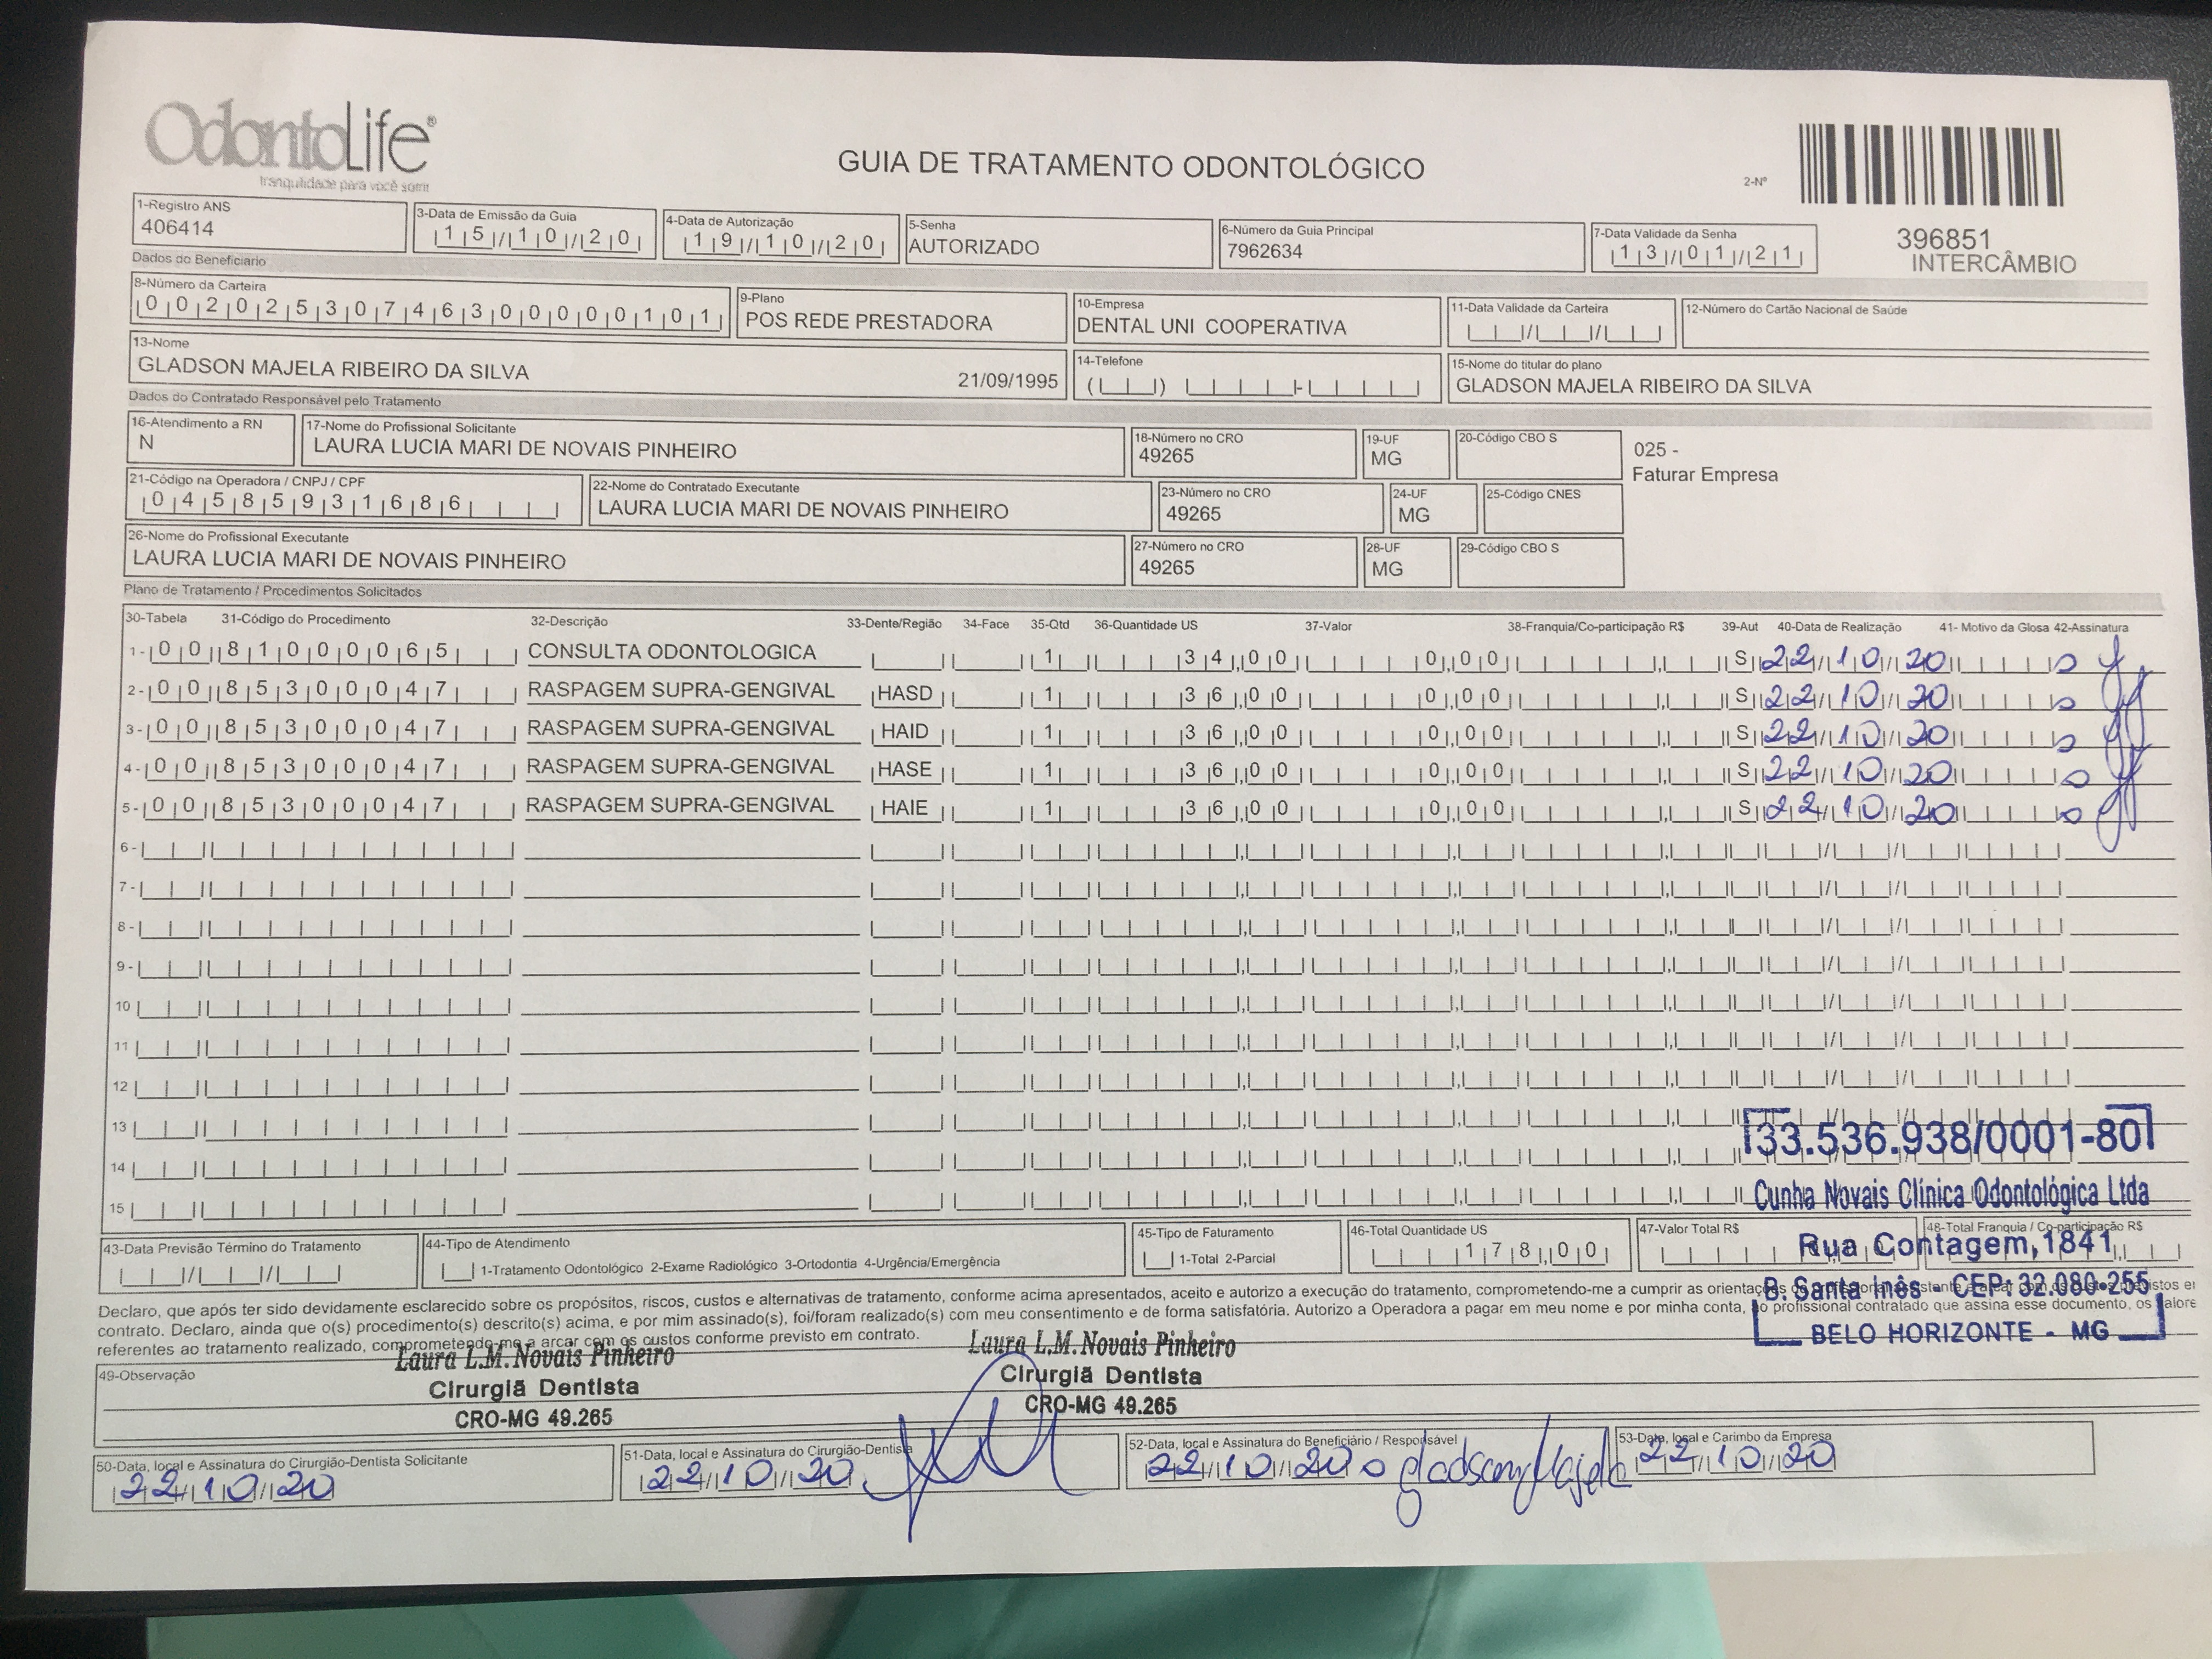 OdontoLife®
tranquilidade para você sorrir
GUIA DE TRATAMENTO ODONTOLÓGICO
2-Nº
396851
INTERCÂMBIO
1-Registro ANS
406414
3-Data de Emissão da Guia
15/10/20
4-Data de Autorização
19/10/20
5-Senha
AUTORIZADO
6-Número da Guia Principal
7962634
7-Data Validade da Senha
13/01/21
Dados do Beneficiário
8-Número da Carteira
00202530746300000101
9-Plano
POS REDE PRESTADORA
10-Empresa
DENTAL UNI COOPERATIVA
11-Data Validade da Carteira
12-Número do Cartão Nacional de Saúde
13-Nome
GLADSON MAJELA RIBEIRO DA SILVA 21/09/1995
14-Telefone
15-Nome do titular do plano
GLADSON MAJELA RIBEIRO DA SILVA
Dados do Contratado Responsável pelo Tratamento
16-Atendimento a RN
N
17-Nome do Profissional Solicitante
LAURA LUCIA MARI DE NOVAIS PINHEIRO
18-Número no CRO
49265
19-UF
MG
20-Código CBO S
025 -
Faturar Empresa
21-Código na Operadora / CNPJ / CPF
04585931686
22-Nome do Contratado Executante
LAURA LUCIA MARI DE NOVAIS PINHEIRO
23-Número no CRO
49265
24-UF
MG
25-Código CNES
26-Nome do Profissional Executante
LAURA LUCIA MARI DE NOVAIS PINHEIRO
27-Número no CRO
49265
28-UF
MG
29-Código CBO S
Plano de Tratamento / Procedimentos Solicitados
30-Tabela 31-Código do Procedimento 32-Descrição 33-Dente/Região 34-Face 35-Qtd 36-Quantidade US 37-Valor 38-Franquia/Co-participação R$ 39-Aut 40-Data de Realização 41- Motivo da Glosa 42-Assinatura
1- 00 81000065 CONSULTA ODONTOLOGICA 1 34,00 0,00 S 22/10/20
2- 00 85300047 RASPAGEM SUPRA-GENGIVAL HASD 1 36,00 0,00 S 22/10/20
3- 00 85300047 RASPAGEM SUPRA-GENGIVAL HAID 1 36,00 0,00 S 22/10/20
4- 00 85300047 RASPAGEM SUPRA-GENGIVAL HASE 1 36,00 0,00 S 22/10/20
5- 00 85300047 RASPAGEM SUPRA-GENGIVAL HAIE 1 36,00 0,00 S 22/10/20
6-
7-
8-
9-
10
11
12
13
14
15
33.536.938/0001-80
Cunha Novais Clínica Odontológica Ltda
Rua Contagem, 1841
B. Santa Inês - CEP: 32.080-255
BELO HORIZONTE - MG
43-Data Previsão Término do Tratamento
44-Tipo de Atendimento
1-Tratamento Odontológico 2-Exame Radiológico 3-Ortodontia 4-Urgência/Emergência
45-Tipo de Faturamento
1-Total 2-Parcial
46-Total Quantidade US
178,00
47-Valor Total R$
48-Total Franquia / Co-participação R$
Declaro, que após ter sido devidamente esclarecido sobre os propósitos, riscos, custos e alternativas de tratamento, conforme acima apresentados, aceito e autorizo a execução do tratamento, comprometendo-me a cumprir as orientações
contrato. Declaro, ainda que o(s) procedimento(s) descrito(s) acima, e por mim assinado(s), foi/foram realizado(s) com meu consentimento e de forma satisfatória. Autorizo a Operadora a pagar em meu nome e por minha conta, ao profissional contratado que assina esse documento, os
referentes ao tratamento realizado, comprometendo-me a arcar com os custos conforme previsto em contrato.
49-Observação
Laura L.M. Novais Pinheiro
Cirurgiã Dentista
CRO-MG 49.265
Laura L.M. Novais Pinheiro
Cirurgiã Dentista
CRO-MG 49.265
50-Data, local e Assinatura do Cirurgião-Dentista Solicitante
22/10/20
51-Data, local e Assinatura do Cirurgião-Dentista
22/10/20
52-Data, local e Assinatura do Beneficiário / Responsável
22/10/20 gladson Majela
53-Data, local e Carimbo da Empresa
22/10/20